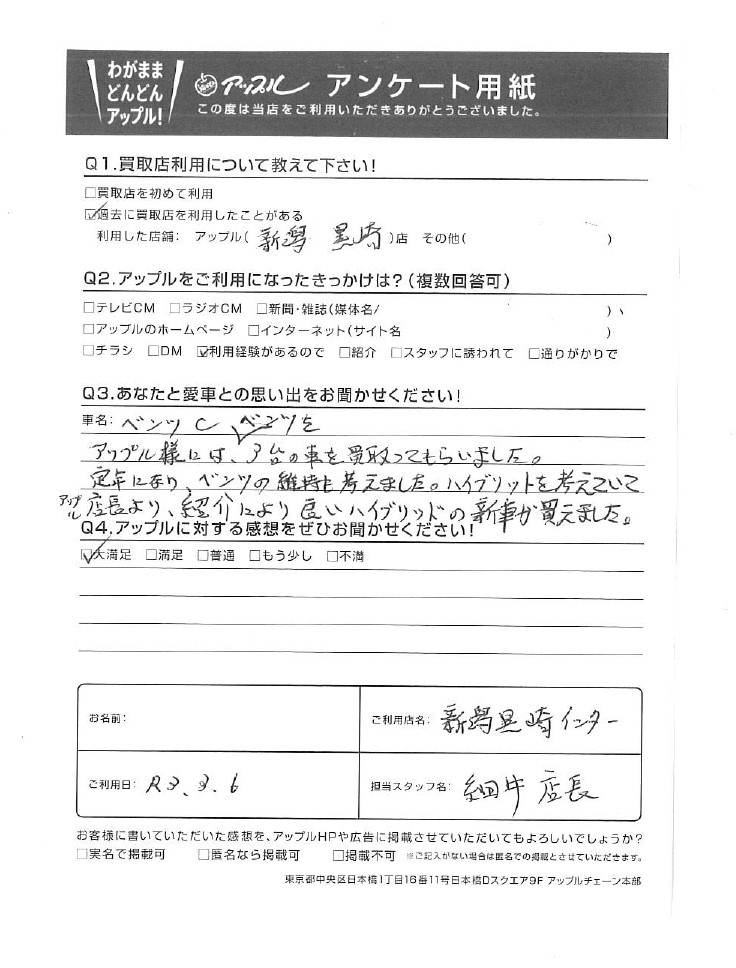 わがまま
どんどん
アップル!
アップル アンケート用紙
この度は当店をご利用いただきありがとうございました。
Q1.買取店利用について教えて下さい!
□買取店を初めて利用
☑過去に買取店を利用したことがある
利用した店舗: アップル(新潟 黒崎)店 その他( )
Q2.アップルをご利用になったきっかけは?(複数回答可)
□テレビCM □ラジオCM □新聞・雑誌(媒体名/ )
□アップルのホームページ □インターネット(サイト名 )
□チラシ □DM ☑利用経験があるので □紹介 □スタッフに誘われて □通りがかりで
Q3.あなたと愛車との思い出をお聞かせください!
車名: ベンツC ベンツを
アップル様には、3台の車を買取ってもらいました。
定年になり、ベンツの維持も考えました。ハイブリットを考えていて
アップル店長より、紹介により良いハイブリッドの新車が買えました。
Q4.アップルに対する感想をぜひお聞かせください!
☑大満足 □満足 □普通 □もう少し □不満
お名前: ご利用店名: 新潟黒崎インター
ご利用日: R3.3.6 担当スタッフ名: 細井 店長
お客様に書いていただいた感想を、アップルHPや広告に掲載させていただいてもよろしいでしょうか?
□実名で掲載可 □匿名なら掲載可 □掲載不可 ※ご記入がない場合は匿名での掲載とさせていただきます。
東京都中央区日本橋1丁目16番11号日本橋Dスクエア9F アップルチェーン本部